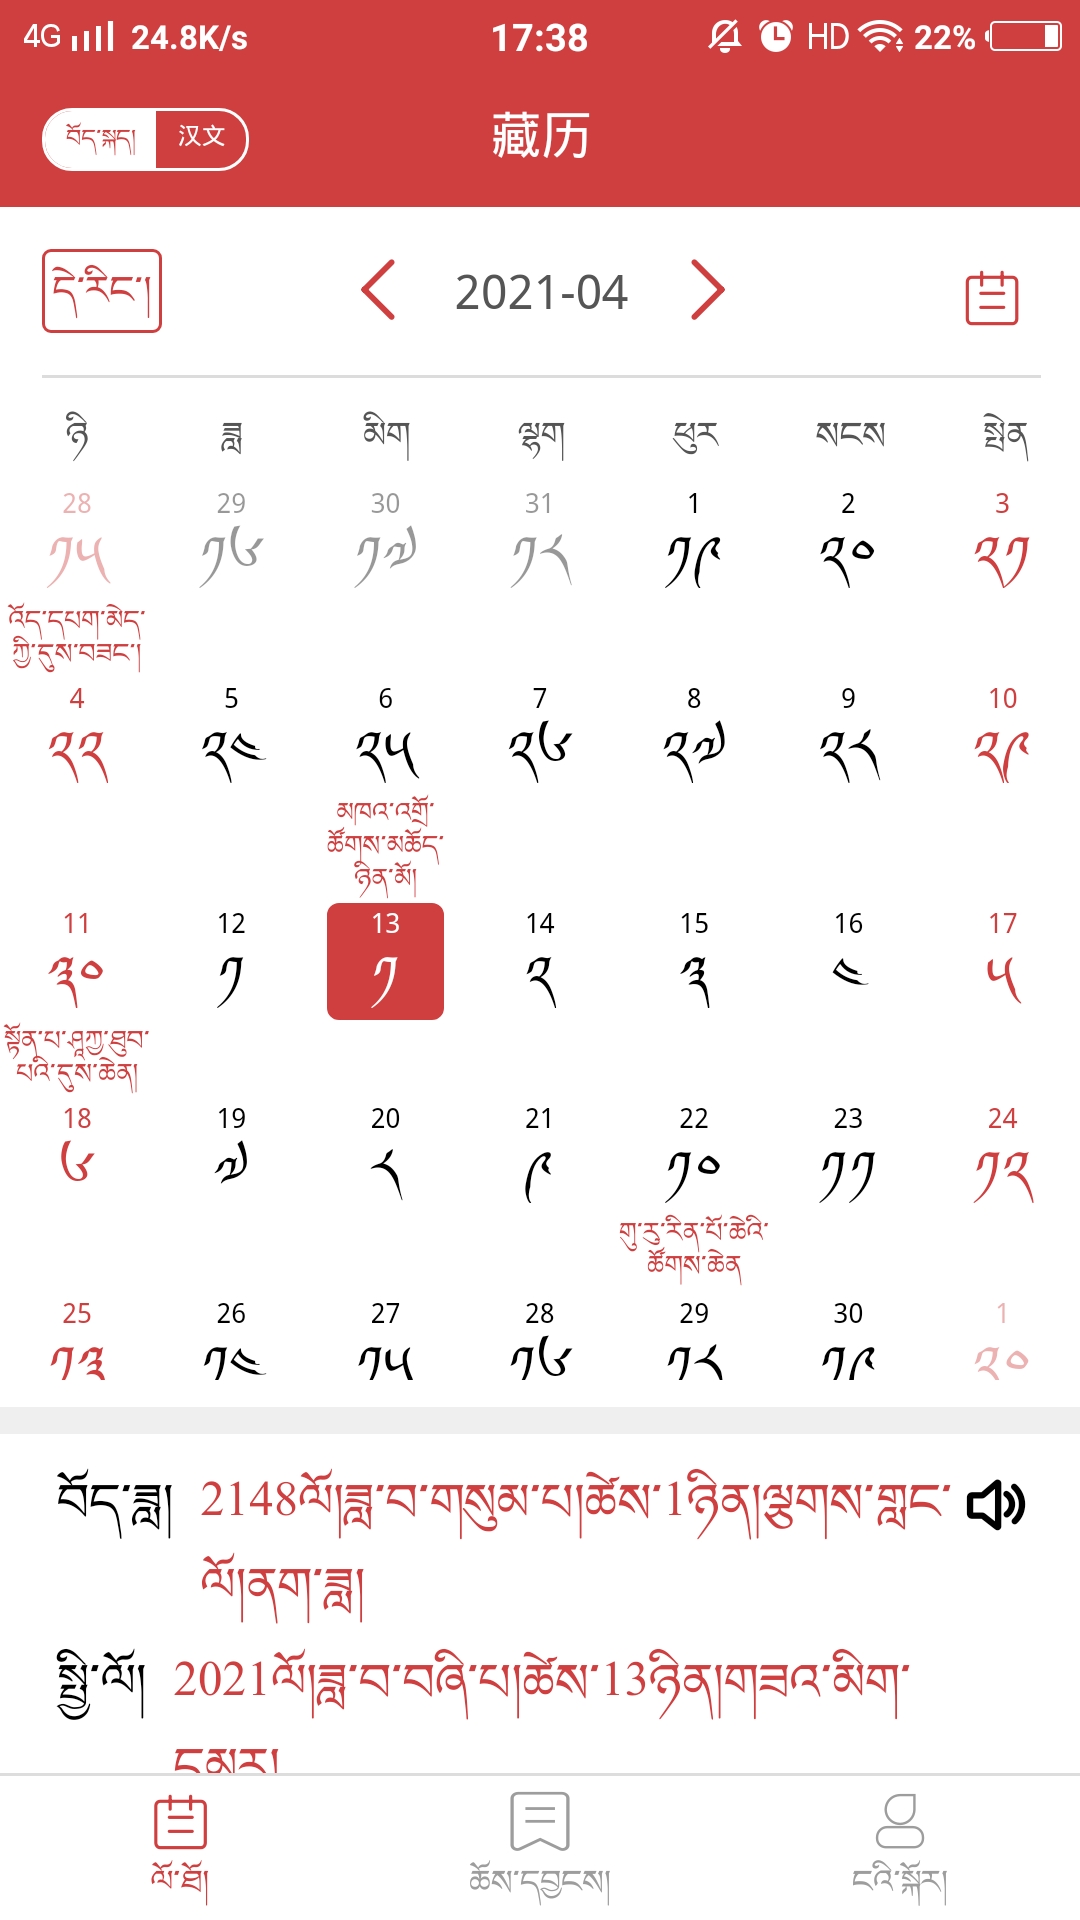 4G 24.8K/s 17:38 HD 22%
བོད་སྐད། 汉文 藏历
དེ་རིང་། 2021-04
ཉི ཟླ མིག ལྷག ཕུར སངས སྤེན
28 29 30 31 1 2 3
༡༥ ༡༦ ༡༧ ༡༨ ༡༩ ༢༠ ༢༡
འོད་དཔག་མེད་
ཀྱི་དུས་བཟང་།
4 5 6 7 8 9 10
༢༢ ༢༤ ༢༥ ༢༦ ༢༧ ༢༨ ༢༩
མཁའ་འགྲོ་
ཚོགས་མཆོད་
ཉིན་མོ།
11 12 13 14 15 16 17
༣༠ ༡ ༡ ༢ ༣ ༤ ༥
སྟོན་པ་ཤཱཀྱ་ཐུབ་
པའི་དུས་ཆེན།
18 19 20 21 22 23 24
༦ ༧ ༨ ༩ ༡༠ ༡༡ ༡༢
གུ་རུ་རིན་པོ་ཆེའི་
ཚོགས་ཆེན
25 26 27 28 29 30 1
༡༣ ༡༤ ༡༥ ༡༦ ༡༨ ༡༩ ༢༠
བོད་ཟླ། 2148ལོ།ཟླ་བ་གསུམ་པ།ཚེས་1ཉིན།ལྕགས་གླང་
ལོ།ནག་ཟླ།
སྤྱི་ལོ། 2021ལོ།ཟླ་བ་བཞི་པ།ཚེས་13ཉིན།གཟའ་མིག་
དམར།
ལོ་ཐོ། ཆོས་དབྱངས། ངའི་སྐོར།